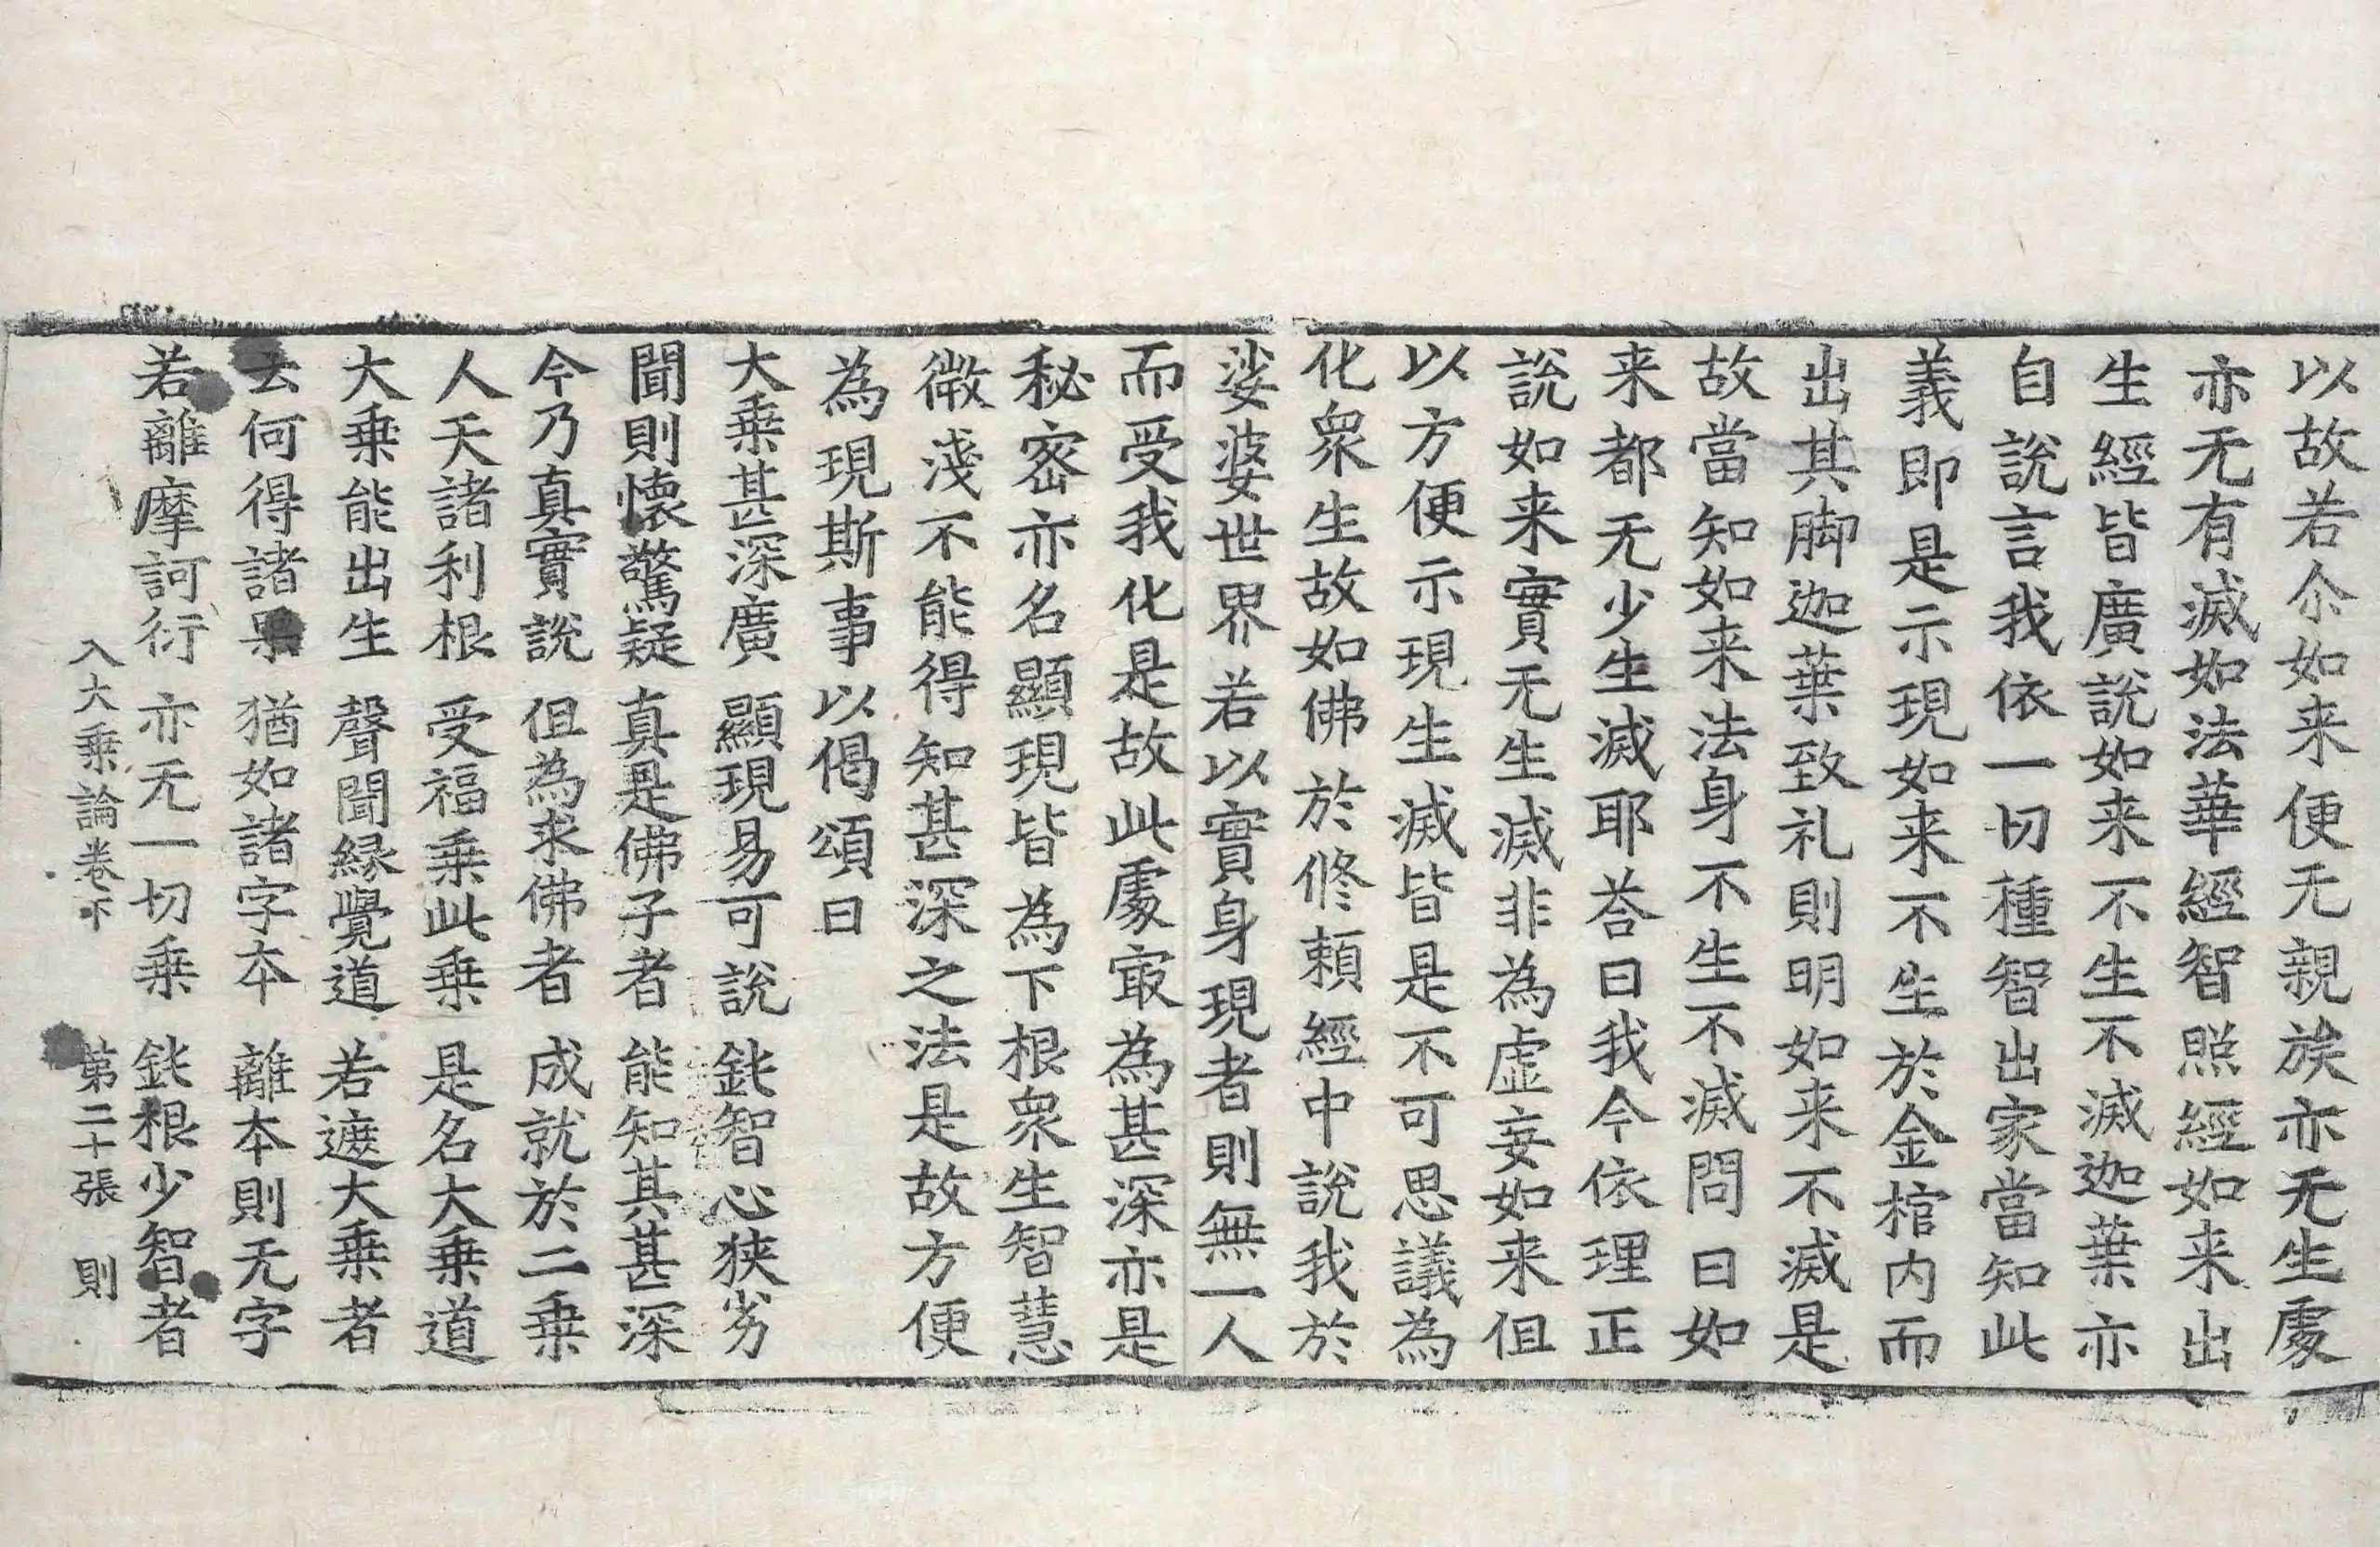 以故若尒如来便无親族亦无生處
亦无有滅如法華經智照經如来出
生經皆廣說如来不生不滅迦葉亦
自說言我依一切種智出家當知此
義即是示現如来不生於金棺内而
出其脚迦葉致礼則明如来不滅是
故當知如来法身不生不滅問曰如
来都无少生滅耶荅曰我今依理正
說如来實无生滅非為虛妄如来但
以方便示現生滅皆是不可思議為
化衆生故如佛於修賴經中說我於
娑婆世界若以實身現者則無一人
而受我化是故此處㝡為甚深亦是
秘密亦名顯現皆為下根衆生智慧
微淺不能得知甚深之法是故方便
為現斯事以偈頌曰
大乗甚深廣　顯現易可說　鈋智心狹劣
聞則懷驚疑　真是佛子者　能知其甚深
今乃真實說　但為求佛者　成就於二乗
人天諸利根　受福乗此乗　是名大乗道
大乗能出生　聲聞緣覺道　若遮大乗者
云何得諸果　猶如諸字本　離本則无字
若離摩訶衍　亦无一切乗　鈋根少智者
入大乗論卷下　第二十張　則